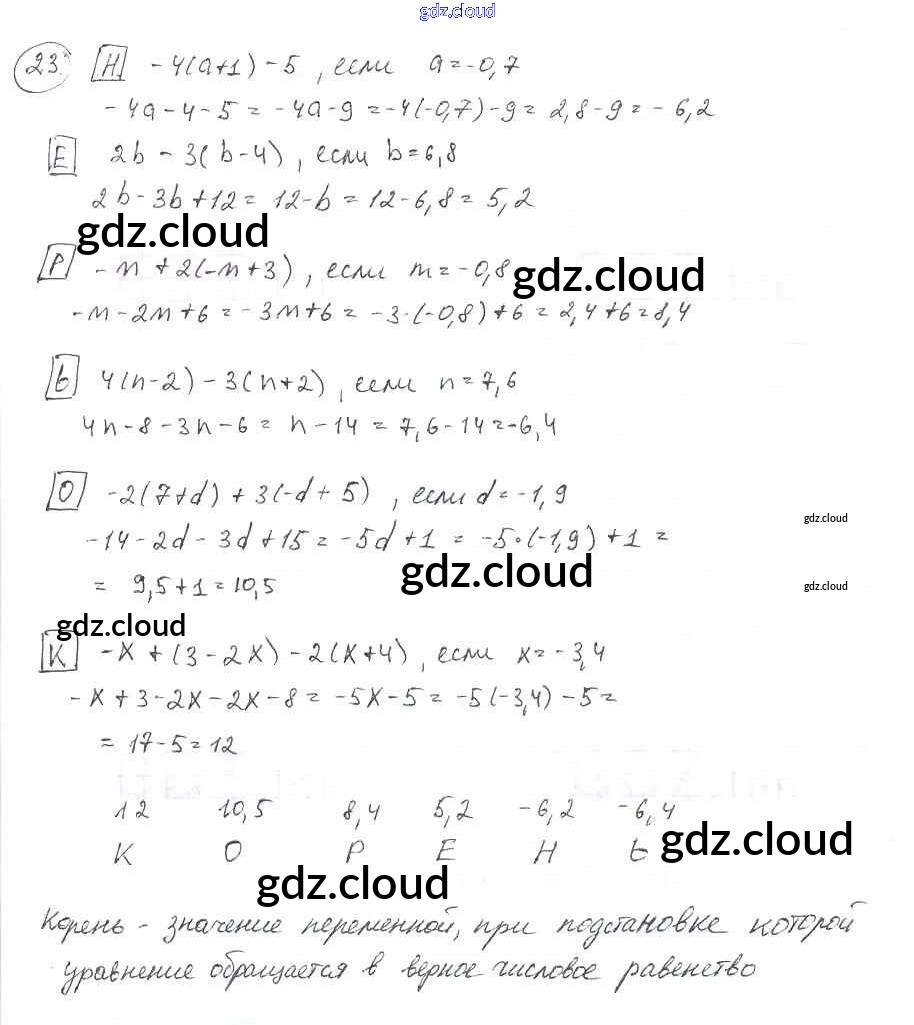 gdz.cloud
23. Н -4(a+1)-5, если a=-0,7
-4a-4-5=-4a-9=-4(-0,7)-9=2,8-9=-6,2
Е 2b-3(b-4), если b=6,8
2b-3b+12=12-b=12-6,8=5,2
gdz.cloud
Р -m+2(-m+3), если m=-0,8 gdz.cloud
-m-2m+6=-3m+6=-3·(-0,8)+6=2,4+6=8,4
Ь 4(n-2)-3(n+2), если n=7,6
4n-8-3n-6=n-14=7,6-14=-6,4
О -2(7+d)+3(-d+5), если d=-1,9
gdz.cloud
-14-2d-3d+15=-5d+1=-5·(-1,9)+1=
gdz.cloud
=9,5+1=10,5
gdz.cloud
gdz.cloud
К -x+(3-2x)-2(x+4), если x=-3,4
-x+3-2x-2x-8=-5x-5=-5(-3,4)-5=
=17-5=12
12 10,5 8,4 5,2 -6,2 -6,4
К О Р Е Н Ь gdz.cloud
gdz.cloud
Корень - значение переменной, при подстановке которой
уравнение обращается в верное числовое равенство